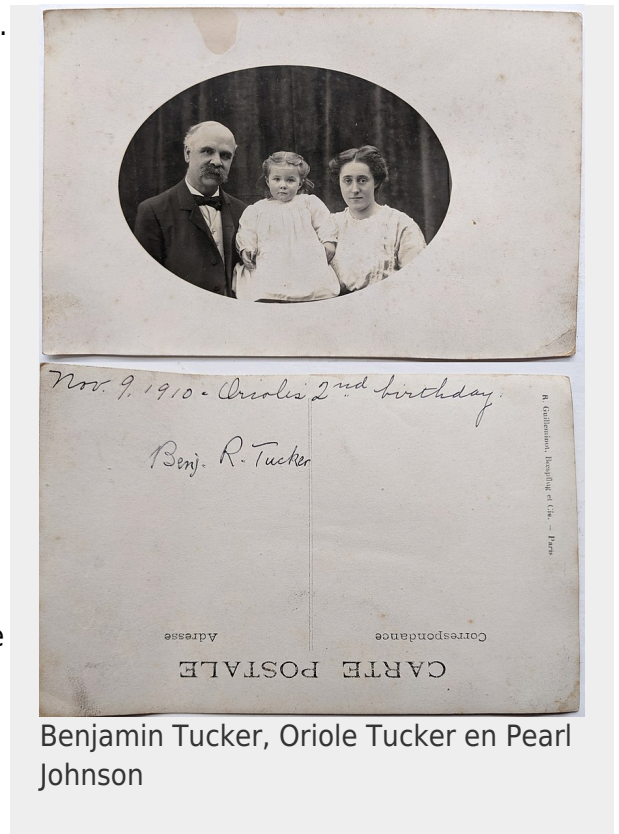 .
Nov. 9, 1910 - Oriole's 2nd birthday.
Benj. R. Tucker
R. Guilleminot, Bœspflug et Cie. – Paris
Correspondance
Adresse
CARTE POSTALE
e
Benjamin Tucker, Oriole Tucker en Pearl
Johnson